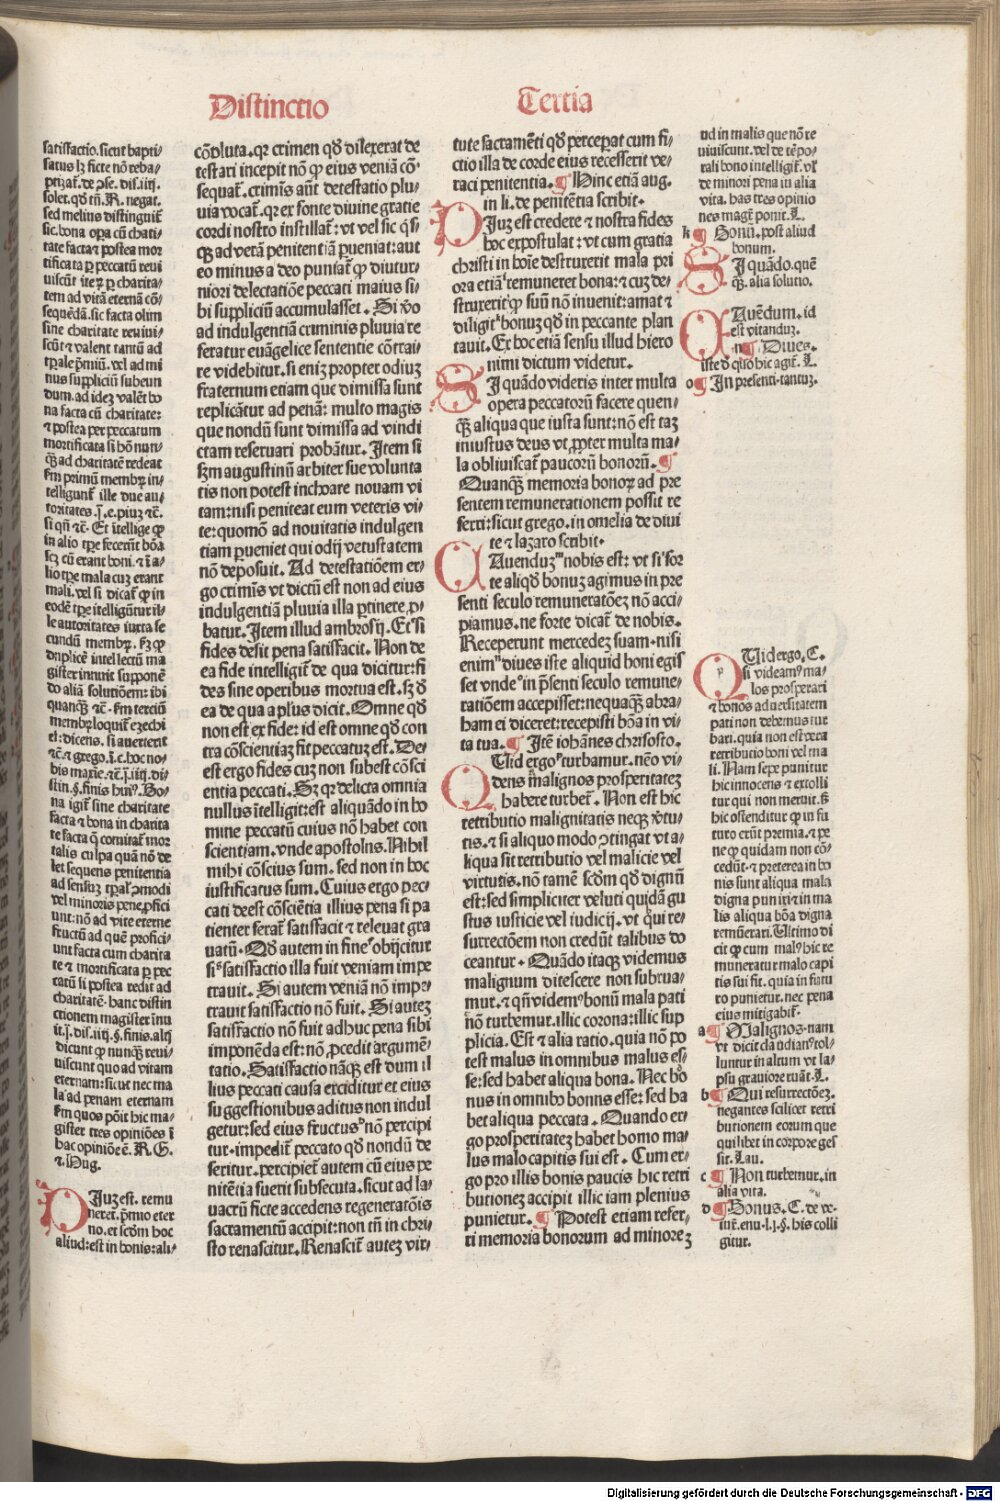 Distinctio
Tertia
satisfactio. sicut bapti⸗
satus lꝫ ficte nō reba⸗
solet. qd tn̄. R. negat.
sed melius distinguit̄
tificata ꝑ peccatū reui
tem ad vitā eternā cō⸗
sequēdā. sic facta olim
sine charitate reuiui⸗
scūt ⁊ valent tantū ad
nus suppliciū subeun
na facta cū charitate:
⁊ postea per peccatum
mortificata si bō nun⸗
q̄ꝫ ad charitatē redeat
telligunt̄ ille due au⸗
mali. vel si dicat̄ ꝙ in
le autoritates iuxta se
duplicē intellectū ma
gister innuit supponē
do aliā solutiōem: ibi
el: dicens. si auerterit
na igit̄ sine charitate
facta ⁊ bona in charita
talis culpa quā nō de
let sequens penitentia
unt: nō ad vite eterne
fructū ad quē profici⸗
unt facta cum charita
te ⁊ mortificata ꝑ pec
catū si postea redit ad
charitatē. hanc distin
ctionem magister innu
dicunt ꝙ nunq̄ꝫ reui⸗
uiscunt quo ad vitam
eternam: sicut nec ma
la ad penam eternam
gister tres opiniōes ī
hac opiniōe ē. R. G.
⁊. Hug.
PIuz est. remu
neret. p̄mio eter
no. et scdm hoc
aliud: est in bonis: ali⸗
cōpluta. qꝛ crimen qd dilexerat de
testari incepit nō ꝙ eius veniā cō⸗
sequat̄. crimīs aūt detestatio plu⸗
uia vocat̄. qꝛ ex fonte diuine gratie
cordi nostro instillat̄: vt vel sic qs⸗
q̄ꝫ ad verā penitentiā ꝑueniat: aut
eo minus a deo puniat̄ ꝙ diutur⸗
niori delectatiōe peccati maius si⸗
bi suppliciū accumulasset. Si v̄o
ad indulgentiā criminis pluuia re
feratur euāgelice sententie cōtrai⸗
re videbitur. si enīꝫ propter odiuꝫ
fraternum etiam que dimissa sunt
replicātur ad penā: multo magis
que nondū sunt dimissa ad vindi
ctam reseruari probātur. Item si
ẜm augustinū arbiter sue volunta
tis non potest inchoare nouam vi
tam: nisi peniteat eum veteris vi⸗
te: quomō ad nouitatis indulgen
tiam ꝑueniet qui odij vetustatem
nō deposuit. Ad detestatiōem er⸗
go crimīs vt dictū est non ad eius
indulgentiā pluuia illa ꝑtinere ꝓ⸗
batur. Item illud ambrosij. Et si
fides desit pena satisfacit. Non de
ea fide intelligit̄ de qua dicitur: fi
des sine operibus mortua est. sꝫ d̄
ea de qua aplus dicit. Omne qd
non est ex fide: id est omne qd con
tra cōscientiaꝫ fit peccatuꝫ est. De⸗
est ergo fides cuꝫ non subest cōsci
entia peccati. Sꝫ qꝛ delicta omnia
nullus ītelligit: est aliquādo in ho
mine peccatū cuius nō habet con
scientiam. vnde apostolus. Nihil
mihi cōscius sum. sed non in hoc
iustificatus sum. Cuius ergo pec⸗
cati deest cōsciētia illius pena si pa
tienter ferat̄ satisfacit ⁊ releuat gra
uatū. Qd autem in fine obijcitur
si satisfactio illa fuit veniam impe
trauit. Si autem veniā nō impe⸗
trauit satisfactio nō fuit. Si auteꝫ
satisfactio nō fuit adhuc pena sibi
imponēda est: nō ꝓcedit argumē⸗
tatio. Satisfactio nāq̄ꝫ est dum il
lius peccati causa exciditur et eius
suggestionibus aditus non indul
getur: sed eius fructus nō percipi
tur. impedit̄ peccato qd nondū de
seritur. percipiet̄ autem cū eius pe
nitētia fuerit subsecuta. sicut ad la⸗
uacrū ficte accedens regeneratōis
sacramentū accipit: non tn̄ in chri⸗
sto renascitur. Renascit̄ auteꝫ vir⸗
tute sacramēti qd perceperat cum fi⸗
ctio illa de corde eius recesserit ve⸗
raci penitentia. ¶ Hinc etiā aug.
in li. de penitētia scribit.
PIuꝫ est credere ⁊ nostra fides
hoc expostulat: vt cum gratia
christi in hoīe destruxerit mala pri
ora etiā remuneret bona: ⁊ cuꝫ de⸗
struxerit ꝙ suū nō inuenit: amat ⁊
diligit bonuꝫ qd in peccante plan
tauit. Ex hoc etiā sensu illud hiero
nimi dictum videtur.
SI quādo videris inter multa
opera peccatorū facere quen⸗
q̄ꝫ aliqua que iusta sunt: nō est taꝫ
iniustus deus vt ꝓpter multa ma⸗
la obliuiscat̄ paucorū bonorū. ¶
Quanq̄ꝫ memoria bonoꝝ ad pre
sentem remunerationem possit re
ferri: sicut grego. in omelia de diui
te ⁊ lazaro scribit.
CAuenduꝫ nobis est: vt si for
te aliqd bonuꝫ agimus in pre
senti seculo remuneratōeꝫ nō acci⸗
piamus. ne forte dicat̄ de nobis.
Receperunt mercedeꝫ suam. nisi
enim diues iste aliquid boni egis
set vnde in p̄senti seculo remune⸗
ratiōem accepisset: nequaq̄ꝫ abra⸗
ham ei diceret: recepisti bōa in vi⸗
ta tua. ¶ Itē iohānes chrisosto.
QUid ergo turbamur. nēo vi⸗
dens malignos prosperitateꝫ
habere turbet̄. Non est hic
retributio malignitatis neqꝫ v̄tu⸗
tis. ⁊ si aliquo modo ꝯtingat vt a⸗
liqua sit retributio vel malicie vel
virtutis. nō tamē scdm qd dignū
est: sed simpliciter veluti quidā gu
stus iusticie vel iudicij. vt qui re⸗
surrectōem non credūt talibus do
ceantur. Quādo itaqꝫ videmus
malignum ditescere non subrua⸗
mur. ⁊ qn̄ videmꝰ bonū mala pati
nō turbemur. illic corona: illic sup
plicia. Est ⁊ alia ratio. quia nō po
test malus in omnibus malus es⸗
se: sed habet aliqua bona. Nec bō
nus in omnibꝰ bonus esse: sed ha
bet aliqua peccata. Quando er⸗
go prosperitateꝫ habet homo ma⸗
lus malo capitis sui est. Cum er⸗
go pro illis bonis paucis hic retri
butioneꝫ accipit illic iam plenius
punietur. ¶ Potest etiam refer⸗
ri memoria bonorum ad minoreꝫ
ud in malis que nō re
uiuiscunt. vel de tēpo⸗
rali bono intelligit̄. vl
de minori pena in alia
vita. has tres opinio
nes magr̄ ponit. L.
k ¶ Bonū. post aliud
bonum.
SI quādo. quē
q̄ꝫ. alia solutio.
CAuēdum. id
est vitanduꝫ.
n ¶ Diues.
o ¶ In presenti. tantuꝫ.
QUid ergo. C.
si videamꝰ ma⸗
los prosperari
⁊ bonos aduersitatem
pati non debemus tur
bari. quia non est vera
retributio boni vel ma
li. Nam sepe punitur
hic innocens ⁊ extolli
tur qui non meruit. s̄
hic ostenditur ꝙ in fu
turo erūt premia. ⁊ pe
ne ꝙ quidam non cō⸗
cedūt. ⁊ preterea in bo
nis sunt aliqua mala
digna puniri ⁊ in ma
lis aliqua bōa digna
remūerari. Ultimo di
cit ꝙ cum malꝰ hic re
muneratur malo capi
tis sui fit. quia in futu
ro punietur. nec pena
eius mitigabit̄.
a ¶ Malignos. nam
vt dicit claudianꝰ tol⸗
luntur in altum vt la⸗
psu grauiore ruāt. L.
b ¶ Qui resurrectōeꝫ.
negantes scilicet retri
butionem eorum que
quilibet in corpore ges
sit. Lau.
c ¶ Non turbemur. in
alia vita.
d ¶ Bonus. C. de ve⸗
gitur.
Digitalisierung gefördert durch die Deutsche Forschungsgemeinschaft - DFG